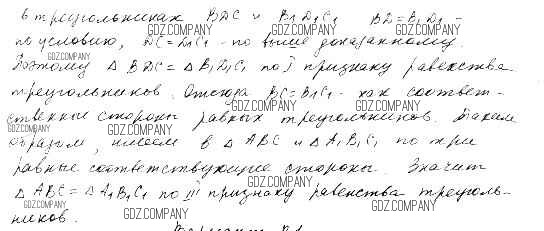 в треугольниках BDC и B₁D₁C₁ BD = B₁D₁ -
по условию, DC = D₁C₁ - по выше доказанному.
Поэтому Δ BDC = Δ B₁D₁C₁ по I признаку равенства
треугольников. Отсюда BC = B₁C₁ - как соответ-
ственные стороны равных треугольников. Таким
образом, имеем в Δ ABC и Δ A₁B₁C₁ по три
равные соответствующие стороны. Значит
Δ ABC = Δ A₁B₁C₁ по III признаку равенства треуголь-
ников.
GDZ.COMPANY GDZ.COMPANY GDZ.COMPANY
GDZ.COMPANY
GDZ.COMPANY GDZ.COMPANY GDZ.COMPANY
GDZ.COMPANY
GDZ.COMPANY GDZ.COMPANY GDZ.COMPANY
GDZ.COMPANY
GDZ.COMPANY GDZ.COMPANY GDZ.COMPANY